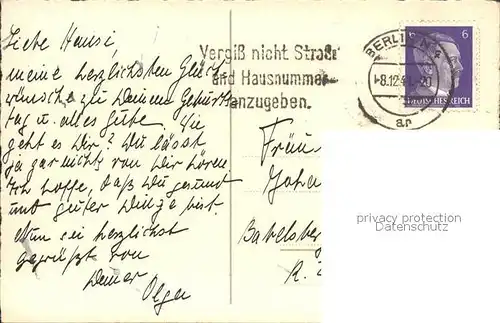 Liebe Hansi,
meine herzlichsten Glück
wünsche zu Deinem Geburts
tag u. alles Gute. Wie
geht es Dir? Du lässt
ja gar nichts von Dir hören.
Ich hoffe, daß Du gesund
und guter Dinge bist.
Nun sei herzlichst
gegrüßt von
Deiner
Olga
Vergiß nicht Straße
und Hausnummer
anzugeben.
BERLIN
-8.12.
an
6
DEUTSCHES REICH
Fräu
Joha
Babelsber
R.
privacy protection
Datenschutz